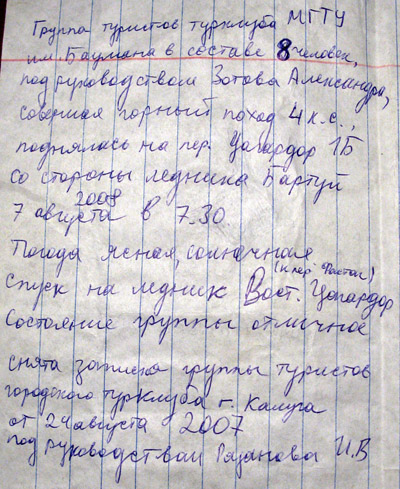 Группа туристов турклуба МГТУ
им. Баумана в составе 8 человек,
под руководством Зотова Александра,
совершая горный поход 4 к.с.,
поднялась на пер. Цагардор 1Б
со стороны ледника Бартуй
7 августа 2008 в 7.30
Погода ясная, солнечная
(к пер. Фастак)
Спуск на ледник Вост. Цагардор
Состояние группы отличное
снята записка группы туристов
городского турклуба г. Калуга
от 24 августа 2007
под руководством Рязанова И.В